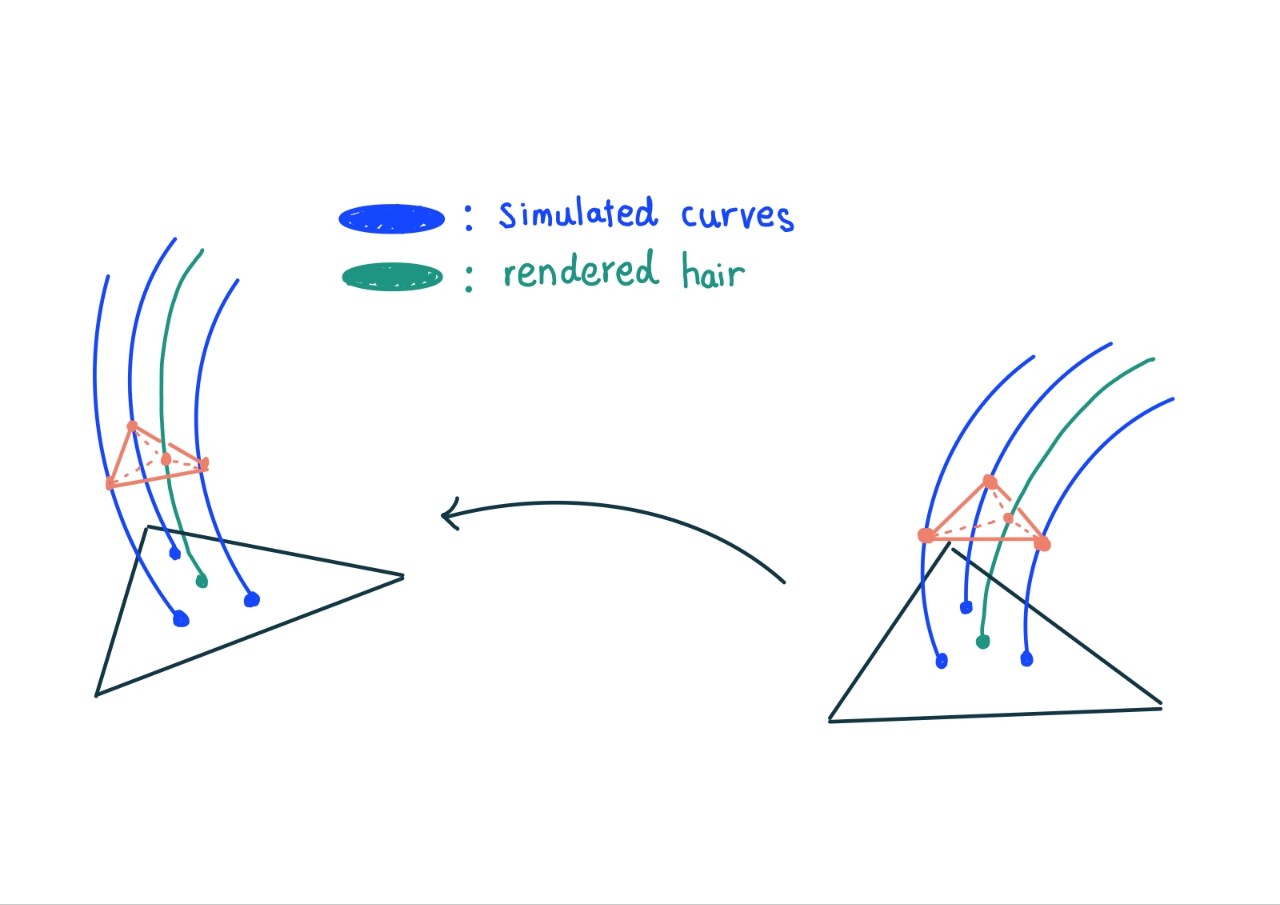 : simulated curves
: rendered hair